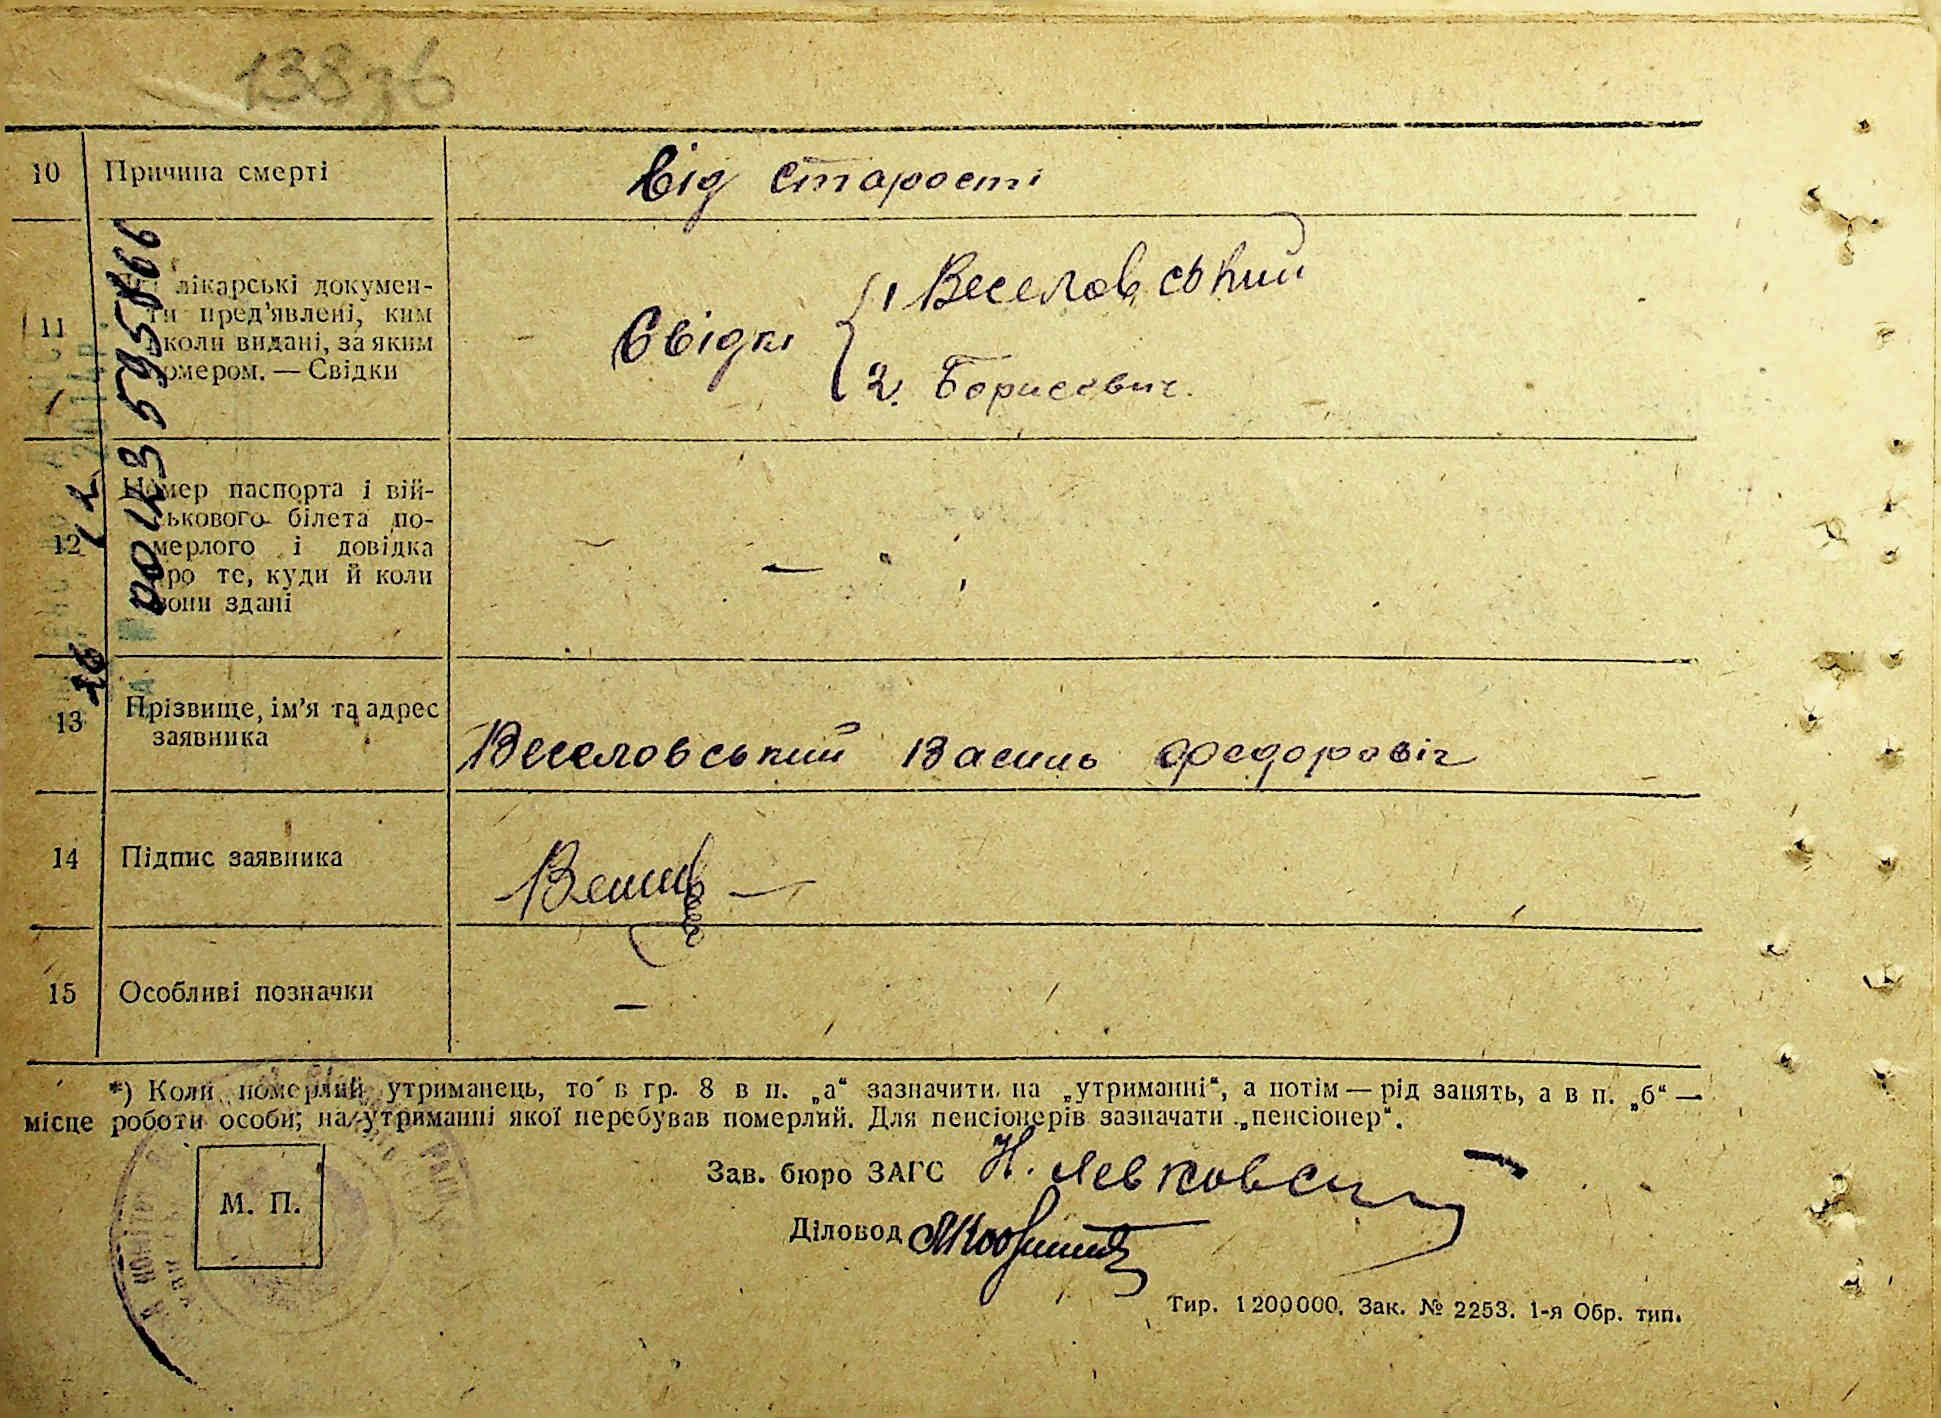 138 зб
10 Причина смерті від старості
лікарські докумен-
ти пред'явлені, ким
11 коли видані, за яким
номером. — Свідки
Свідкі
1 Веселовський
2. Борисович.
Номер паспорта і вій-
ськового білета по-
12 мерлого і довідка
про те, куди й коли
вони здані
—
13 Прізвище, ім'я та адрес
заявника
Веселовський Василь Федоровіч
14 Підпис заявника
15 Особливі позначки —
00123595866
*) Коли померлий утриманець, то в гр. 8 в п. „а“ зазначити на „утриманні“, а потім — рід занять, а в п. „б“ —
місце роботи особи, на утриманні якої перебував померлий. Для пенсіонерів зазначати „пенсіонер“.
М. П.
Зав. бюро ЗАГС
Діловод
Тир. 1 200 000. Зак. № 2253. 1-я Обр. тип.